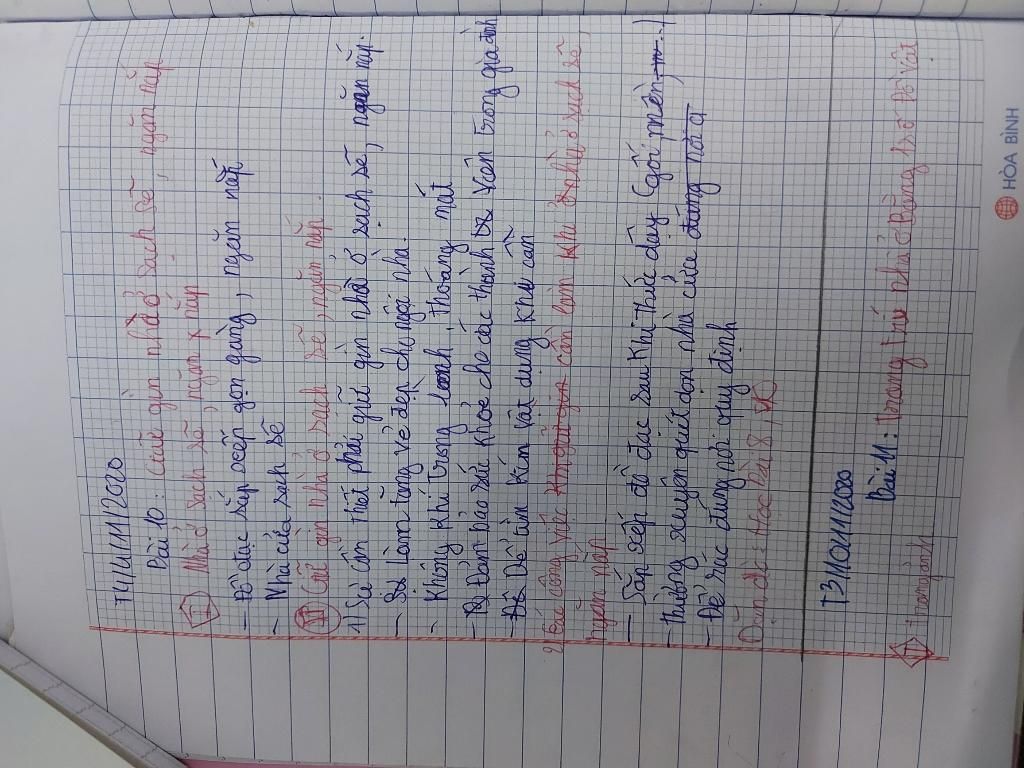 T4/4/11/2020
Bài 10: Giữ gìn nhà ở sạch sẽ, ngăn nắp
I Nhà ở sạch sẽ, ngăn nắp
- Đồ đạc sắp xếp gọn gàng, ngăn nắp
- Nhà cửa sạch sẽ
II Giữ gìn nhà ở sạch sẽ, ngăn nắp.
1) Sự cần thiết phải giữ gìn nhà ở sạch sẽ, ngăn nắp.
- Làm tăng vẻ đẹp cho ngôi nhà.
- Không khí trong lành, thoáng mát
- Đảm bảo sức khoẻ cho các thành viên trong gia đình
- Dễ tìm kiếm vật dụng khi cần
2) Các công việc cần làm nhà ở sạch sẽ,
ngăn nắp
- Sắp xếp đồ đạc sau khi thức dậy (gối, mền,...)
- Thường xuyên quét dọn nhà cửa
- Đổ rác đúng nơi quy định
Dặn dò: Học bài 8,
T3/10/11/2020
Bài 11: Trang trí nhà ở bằng 1 số đồ vật
I Tranh ảnh
HÒA BÌNH